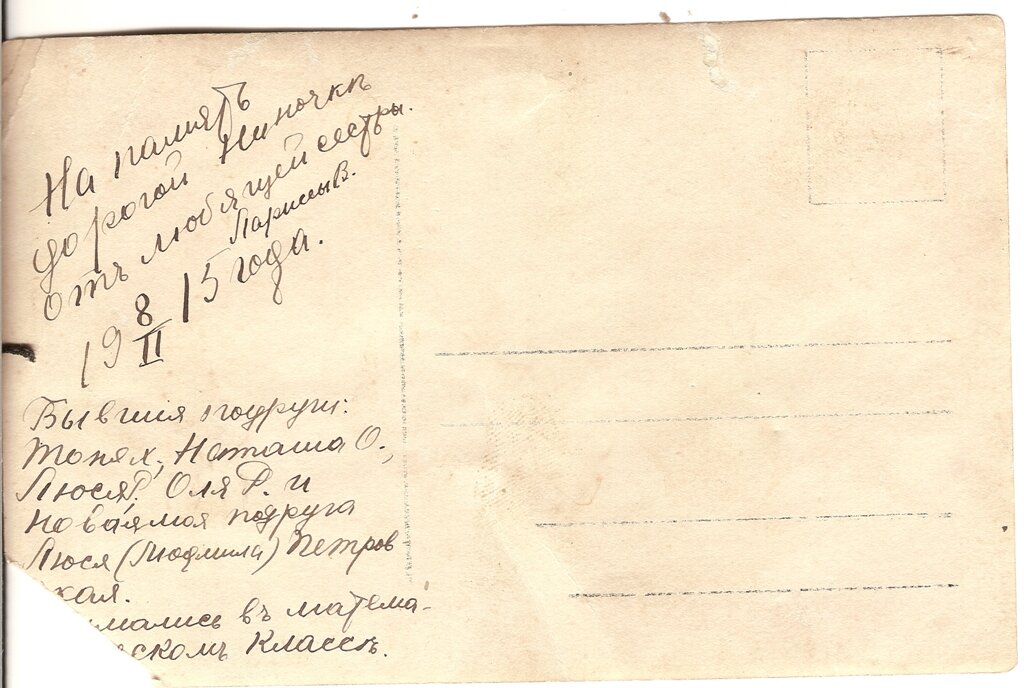 На память
дорогой Ниночкѣ
отъ любящей сестры.
Ларисы В.
19 8/II 15 года.
Бывшия подруги:
Тоня Х., Наташа О.,
Люся Р. Оля Р. и
новая моя подруга
Люся (Людмила) Петров
ская.
мались въ матема-
ческомъ Классѣ.